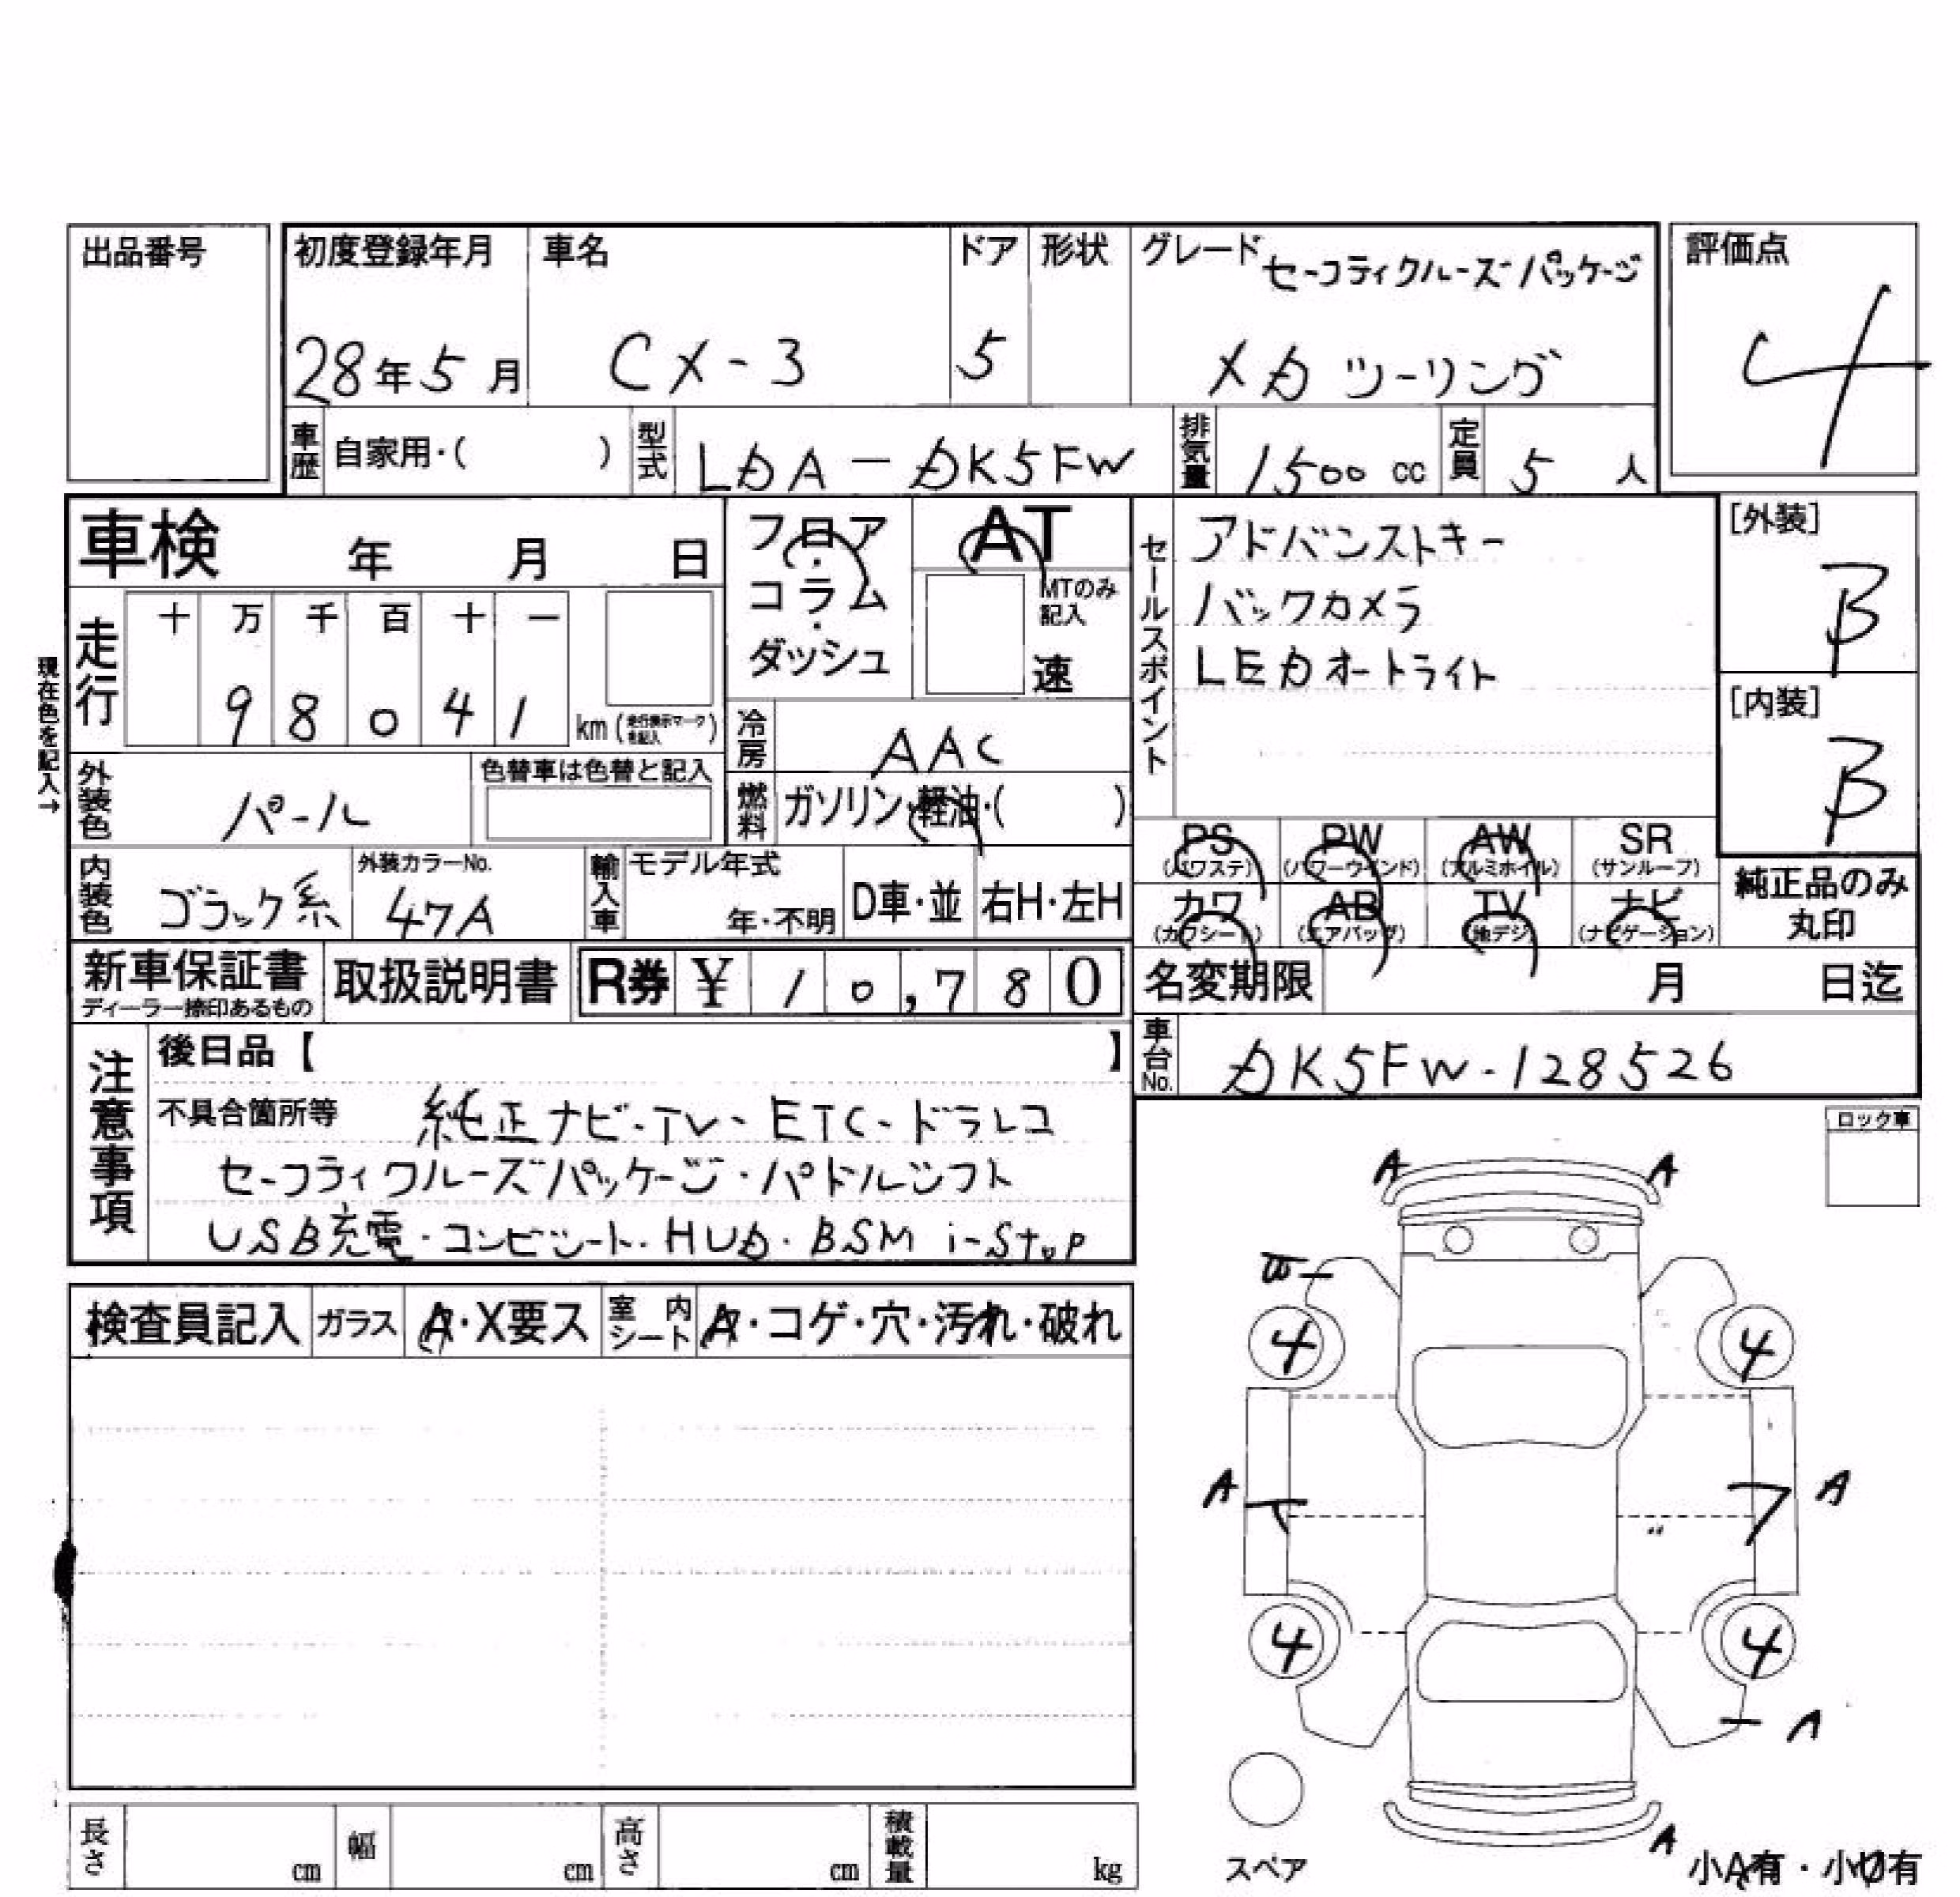 出品番号
初度登録年月 車名 ドア 形状 グレード セーフティクルーズパッケージ 評価点
28年5月 CX-3 5 XD ツーリング 4
車歴 自家用・( ) 型式 LDA-DK5FW 排気量 1500 cc 定員 5 人
車検 年 月 日 フロア・コラム・ダッシュ AT MTのみ記入 速
セールスポイント アドバンストキー
バックカメラ
LEDオートライト
[外装] B
[内装] B
現在色を記入→
走行 十 万 千 百 十 一
98041 km (走行表示マークを記入)
冷房 AAC
燃料 ガソリン・軽油・( )
外装色 パール 色替車は色替と記入
内装色 ブラック系 外装カラーNo. 47A 輸入車 モデル年式 年・不明 D車・並 右H・左H
PS (パワステ) PW (パワーウインド) AW (アルミホイル) SR (サンルーフ)
カワ (カワシート) AB (エアバッグ) TV (地デジ) ナビ (ナビゲーション)
純正品のみ丸印
新車保証書 ディーラー捺印あるもの 取扱説明書 R券 ¥ 10,780 名変期限 月 日迄
車台No. DK5FW-128526
注意事項 後日品【 】
不具合箇所等 純正ナビ・TV・ETC・ドラレコ
セーフティクルーズパッケージ・パドルシフト
USB充電・コンビシート・HUD・BSM i-Stop
ロック車
検査員記入 ガラス A・X要ス 室内シート A・コゲ・穴・汚れ・破れ
A A
4 4
A A
4 4
A
A
スペア 小A有・小U有
長さ cm 幅 cm 高さ cm 積載量 kg